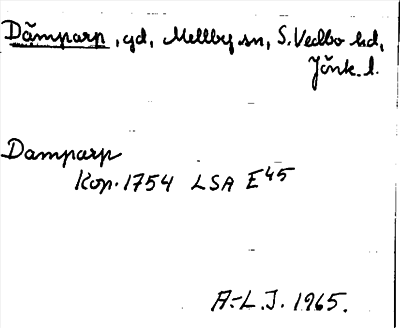 Dämparp, gd, Mellby sn, S. Vedbo hd,
Jönk. l.
Damparp
Kop. 1754 LSA E45
A.-L. J. 1965.